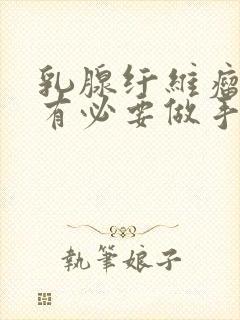 乳腺纤維瘤
有必要做手
執筆娘子